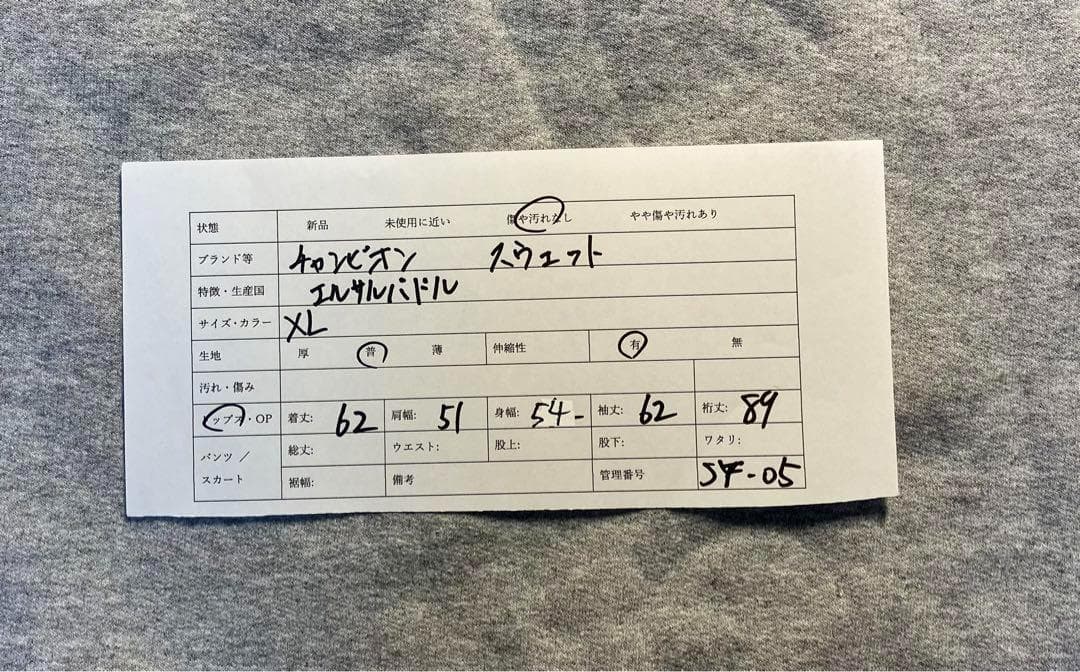 状態 新品 未使用に近い 傷や汚れなし やや傷や汚れあり
ブランド等 チャンピオン スウェット
特徴・生産国 エルサルバドル
サイズ・カラー XL
生地 厚 普 薄 伸縮性 有 無
汚れ・傷み
トップス・OP 着丈: 62 肩幅: 51 身幅: 54- 袖丈: 62 裄丈: 89
パンツ / スカート 総丈: ウエスト: 股上: 股下: ワタリ:
裾幅: 備考 管理番号 SF-05